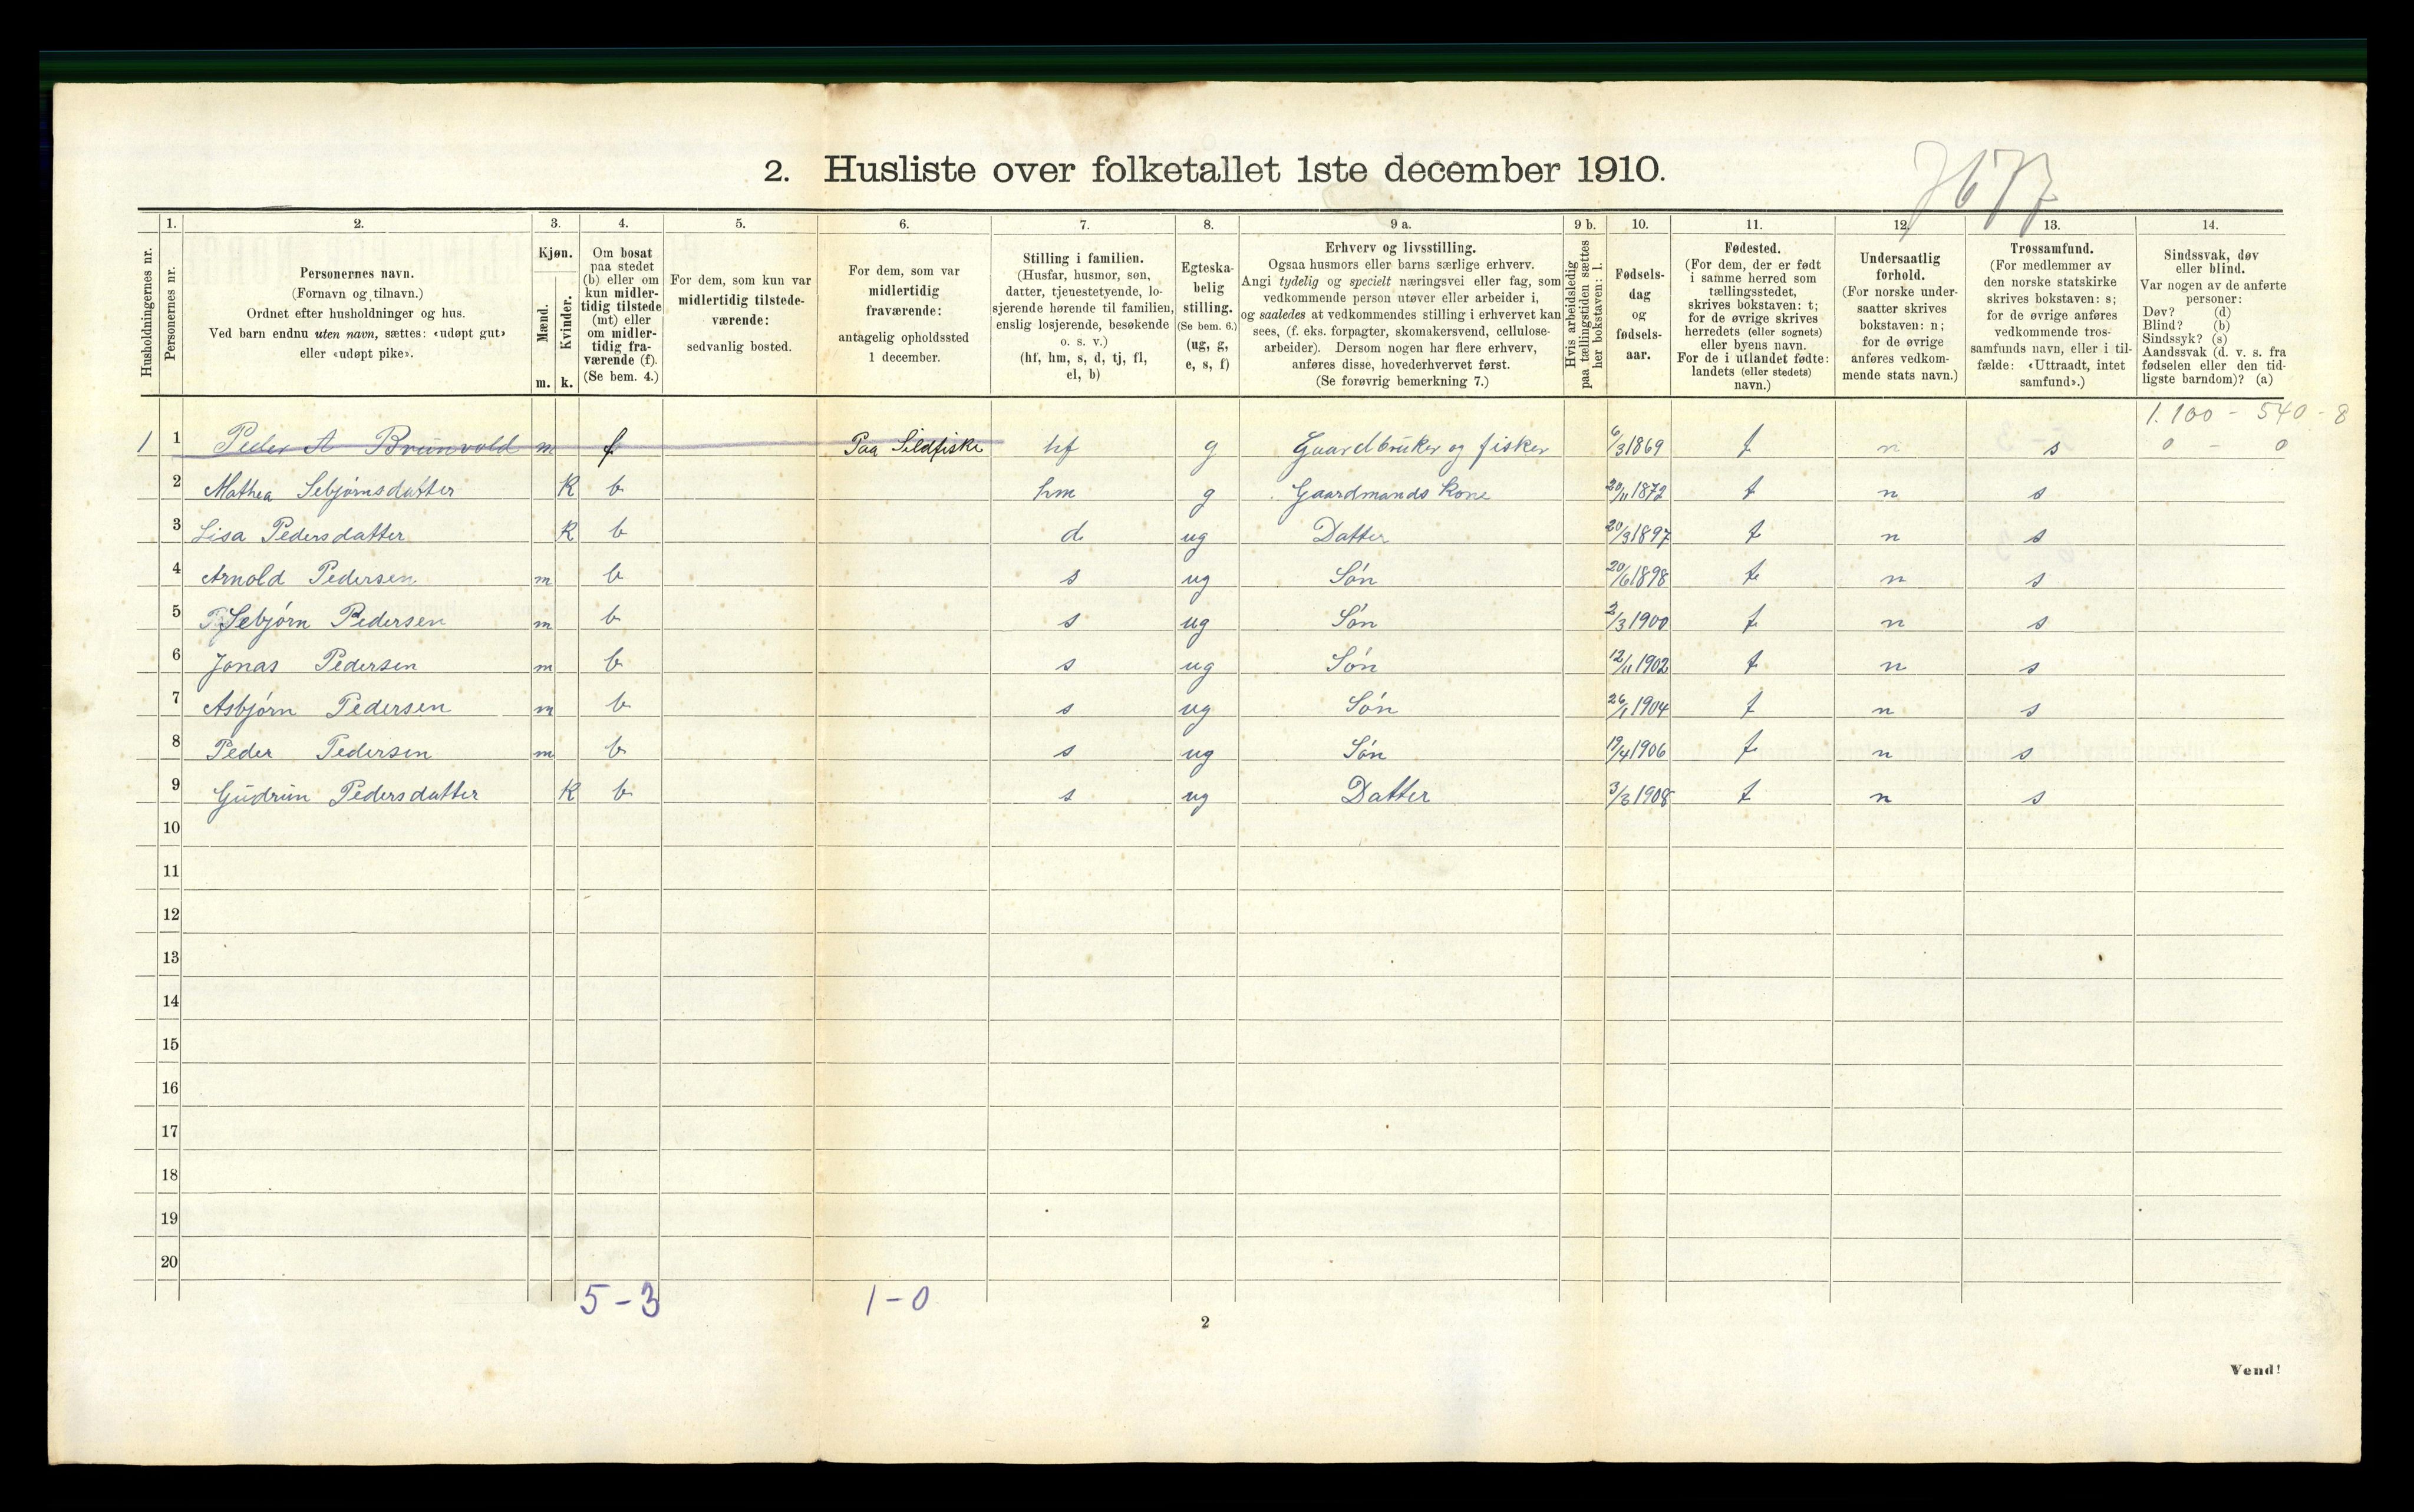 2. Husliste over folketallet 1ste december 1910.
7677
1. 2. 3. 4. 5. 6. 7. 8. 9 a. 9 b. 10. 11. 12. 13. 14.
Husholdningernes nr.
Personernes nr.
Personernes navn.
(Fornavn og tilnavn.)
Ordnet efter husholdninger og hus.
Ved barn endnu uten navn, sættes: «udøpt gut»
eller «udøpt pike».
Kjøn.
Mænd.
Kvinder.
m. k.
Om bosat
paa stedet
(b) eller om
kun midler-
tidig tilstede
(mt) eller
om midler-
tidig fra-
værende (f).
(Se bem. 4.)
For dem, som kun var
midlertidig tilstede-
værende:
sedvanlig bosted.
For dem, som var
midlertidig
fraværende:
antagelig opholdssted
1 december.
Stilling i familien.
(Husfar, husmor, søn,
datter, tjenestetyende, lo-
sjerende hørende til familien,
enslig losjerende, besøkende
o. s. v.)
(hf, hm, s, d, tj, fl,
el, b)
Egteska-
belig
stilling.
(Se bem. 6.)
(ug, g,
e, s, f)
Erhverv og livsstilling.
Ogsaa husmors eller barns særlige erhverv.
Angi tydelig og specielt næringsvei eller fag, som
vedkommende person utøver eller arbeider i,
og saaledes at vedkommendes stilling i erhvervet kan
sees, (f. eks. forpagter, skomakersvend, cellulose-
arbeider). Dersom nogen har flere erhverv,
anføres disse, hovederhvervet først.
(Se forøvrig bemerkning 7.)
Hvis arbeidsledig
paa tællingstiden sættes
her bokstaven: l.
Fødsels-
dag
og
fødsels-
aar.
Fødested.
(For dem, der er født
i samme herred som
tællingsstedet,
skrives bokstaven: t;
for de øvrige skrives
herredets (eller sognets)
eller byens navn.
For de i utlandet fødte:
landets (eller stedets)
navn.)
Undersaatlig
forhold.
(For norske under-
saatter skrives
bokstaven: n;
for de øvrige
anføres vedkom-
mende stats navn.)
Trossamfund.
(For medlemmer av
den norske statskirke
skrives bokstaven: s;
for de øvrige anføres
vedkommende tros-
samfunds navn, eller i til-
fælde: «Uttraadt, intet
samfund».)
Sindssvak, døv
eller blind.
Var nogen av de anførte
personer:
Døv? (d)
Blind? (b)
Sindssyk? (s)
Aandssvak (d. v. s. fra
fødselen eller den tid-
ligste barndom)? (a)
1.100 - 540 - 8
1 1 Peder A Brunvold m f Paa Sildfiske hf g Gaardbruker og fisker 6/3 1869 t n s 0 - 0
2 Mathea Sebjørnsdatter K b hm g Gaardmands Kone 20/11 1872 t n s
3 Lisa Pedersdatter K b d ug Datter 20/3 1897 t n s
4 Arnold Pedersen m b s ug Søn 20/6 1898 t n s
5 Sebjørn Pedersen m b s ug Søn 2/3 1900 t n s
6 Jonas Pedersen m b s ug Søn 12/11 1902 t n s
7 Asbjørn Pedersen m b s ug Søn 26/1 1904 t n s
8 Peder Pedersen m b s ug Søn 19/4 1906 t n s
9 Gudrun Pedersdatter K b s ug Datter 1908 t n s
10
11
12
13
14
15
16
17
18
19
20
5 - 3 1 - 0
2
Vend!